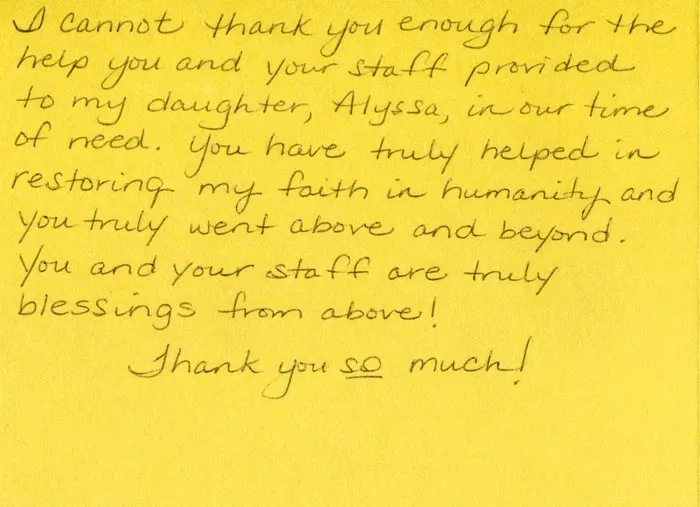 I cannot thank you enough for the
help you and your staff provided
to my daughter, Alyssa, in our time
of need. You have truly helped in
restoring my faith in humanity and
you truly went above and beyond.
You and your staff are truly
blessings from above!
Thank you so much!